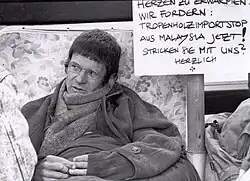 HERZEN ZU ERWÄRMEN.
WIR FORDERN:
TROPENHOLZIMPORTSTOP
AUS MALAYSIA JETZT!
STRICKEN SIE MIT UNS?
HERZLICH